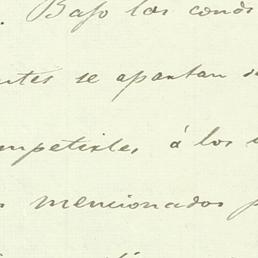 . Bajo las conds
ntes se apartan s
mpetirles, á los
s mencionados p